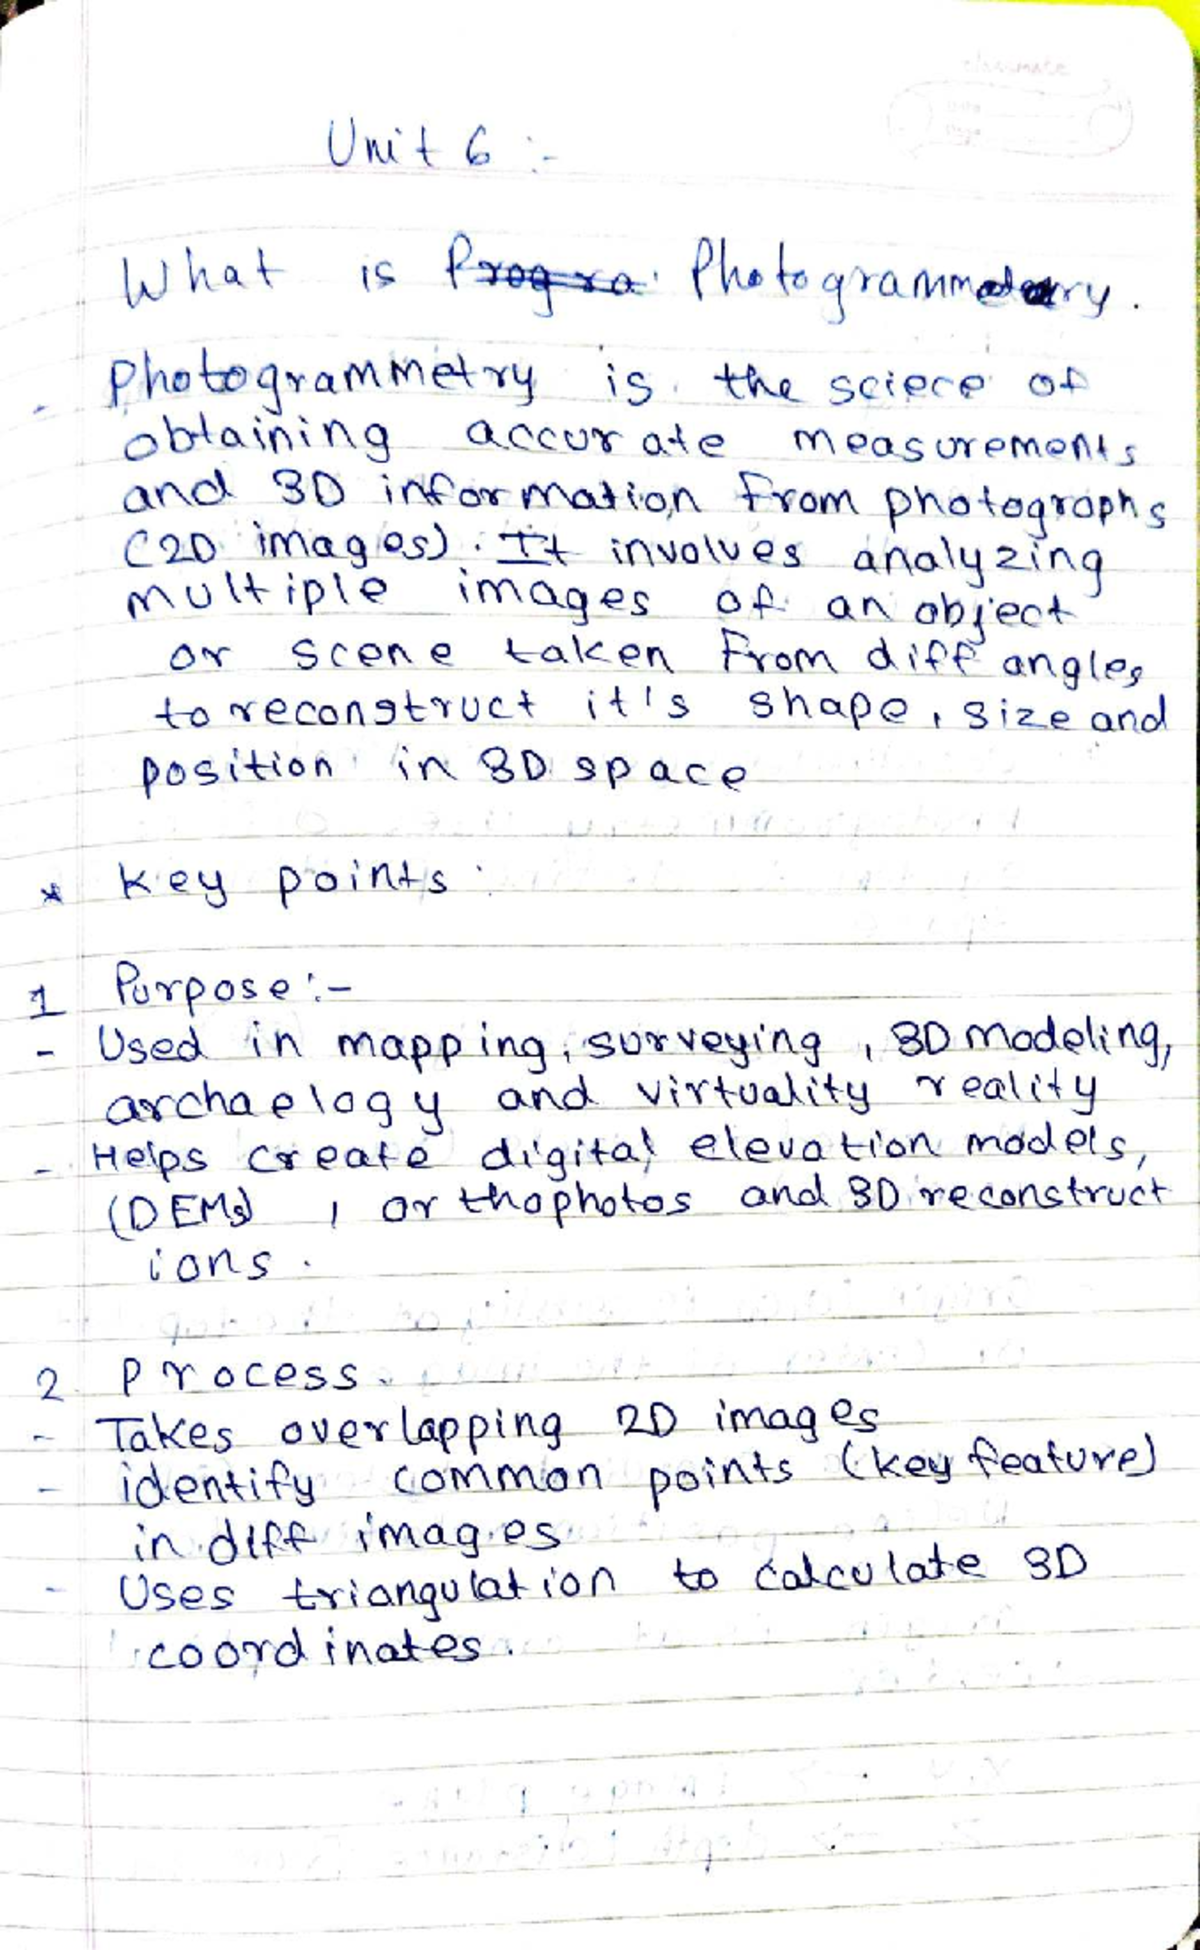 classmate
Unit 6 :-
What is Progra Photogrammetry.
- Photogrammetry is the sciece of
obtaining accurate measurements
and 3D information from photographs
(2D images). It involves analyzing
multiple images of an object
or scene taken from diff angles
to reconstruct it's shape, size and
position in 3D space
* Key points:
1 Purpose:-
- Used in mapping, surveying, 3D modeling,
archaelogy and virtuality reality
- Helps create digital elevation models,
(DEMs), orthophotos and 3D reconstruct
ions.
2. Process.
- Takes overlapping 2D images
- identify common points (key feature)
in diff images
- Uses triangulation to calculate 3D
coordinates.